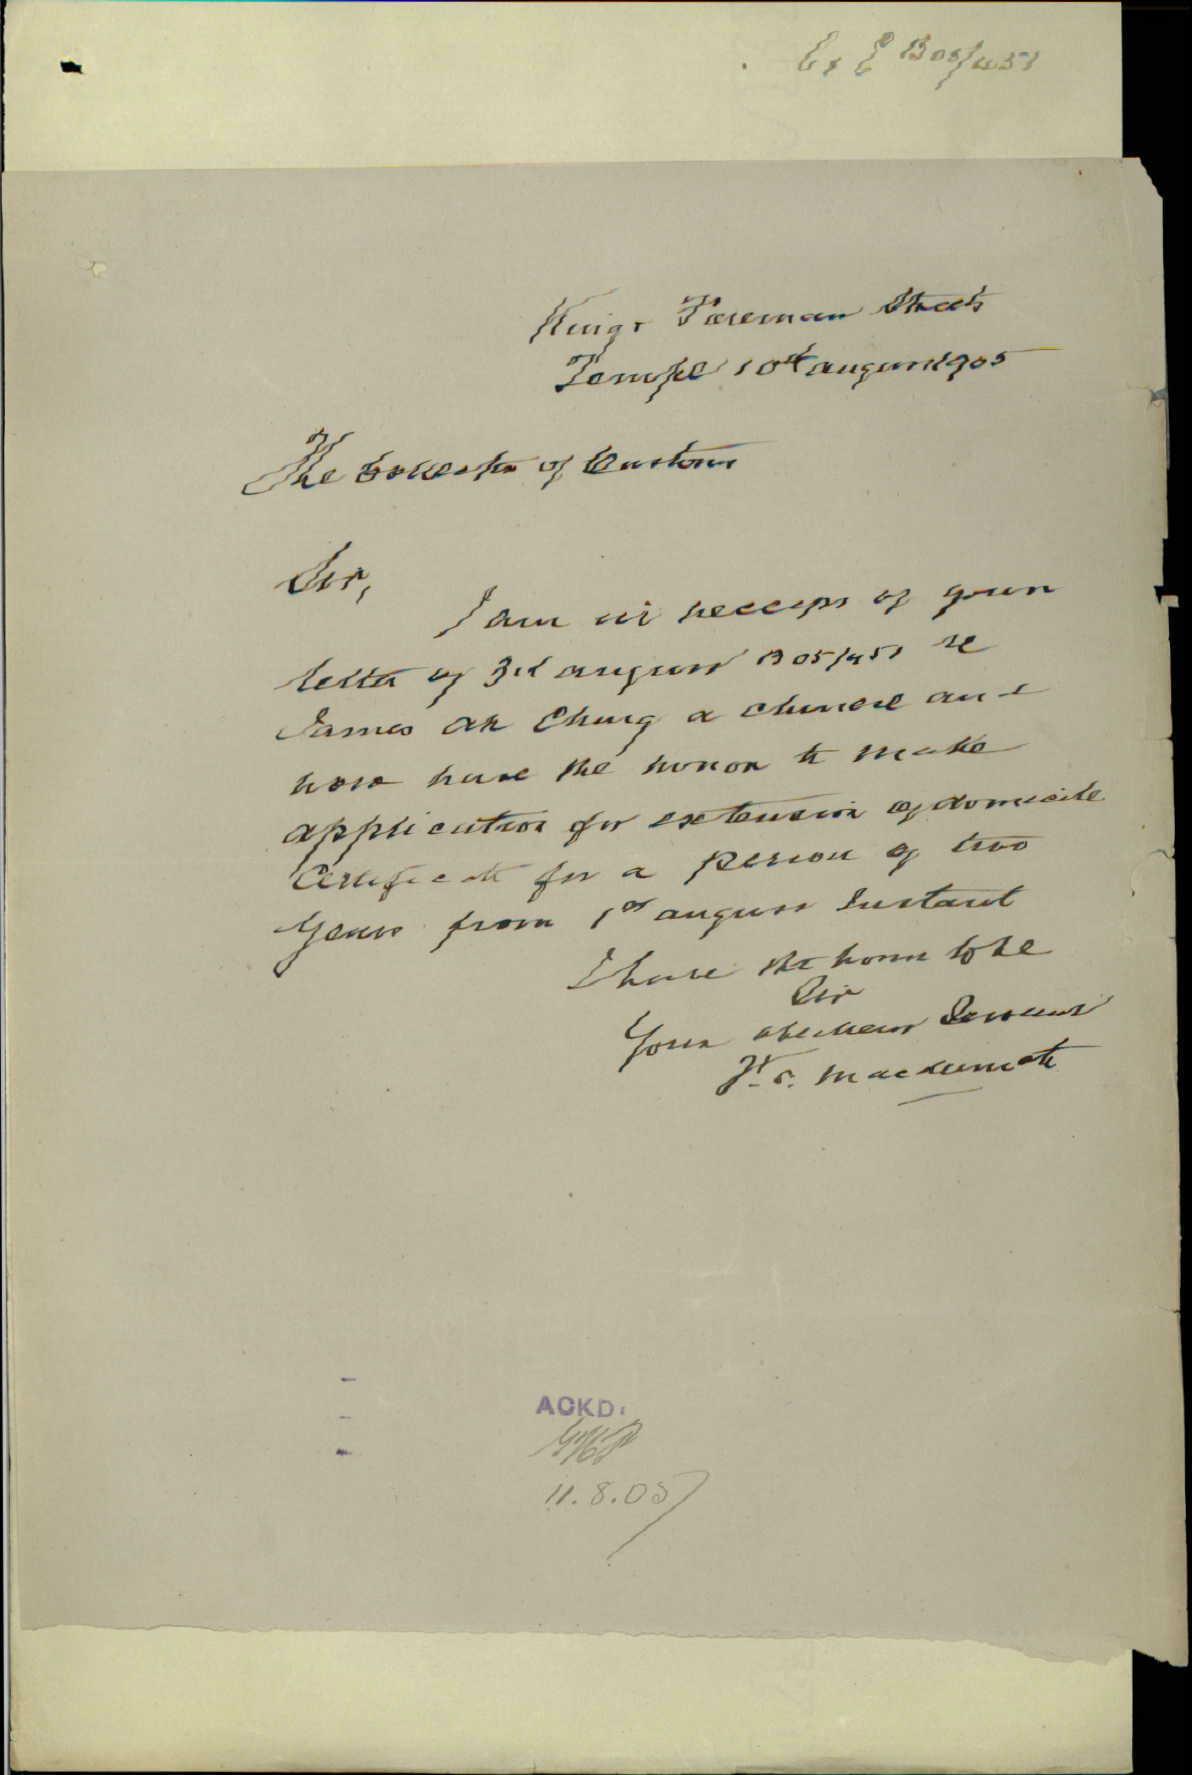 B05/451
King & Foreman Streets
Tempe 10th august 1905
The Collector of Customs
Sir,
I am in receipt of your
letter of 3rd august B05/451 re
James Ah Chung a chinese and
now have the honor to make
application for extension of domicile
Certificate for a period of two
years from 1st august Instant
I have the honor to be
Sir
Your obedient Servant
ACKD.
11.8.05